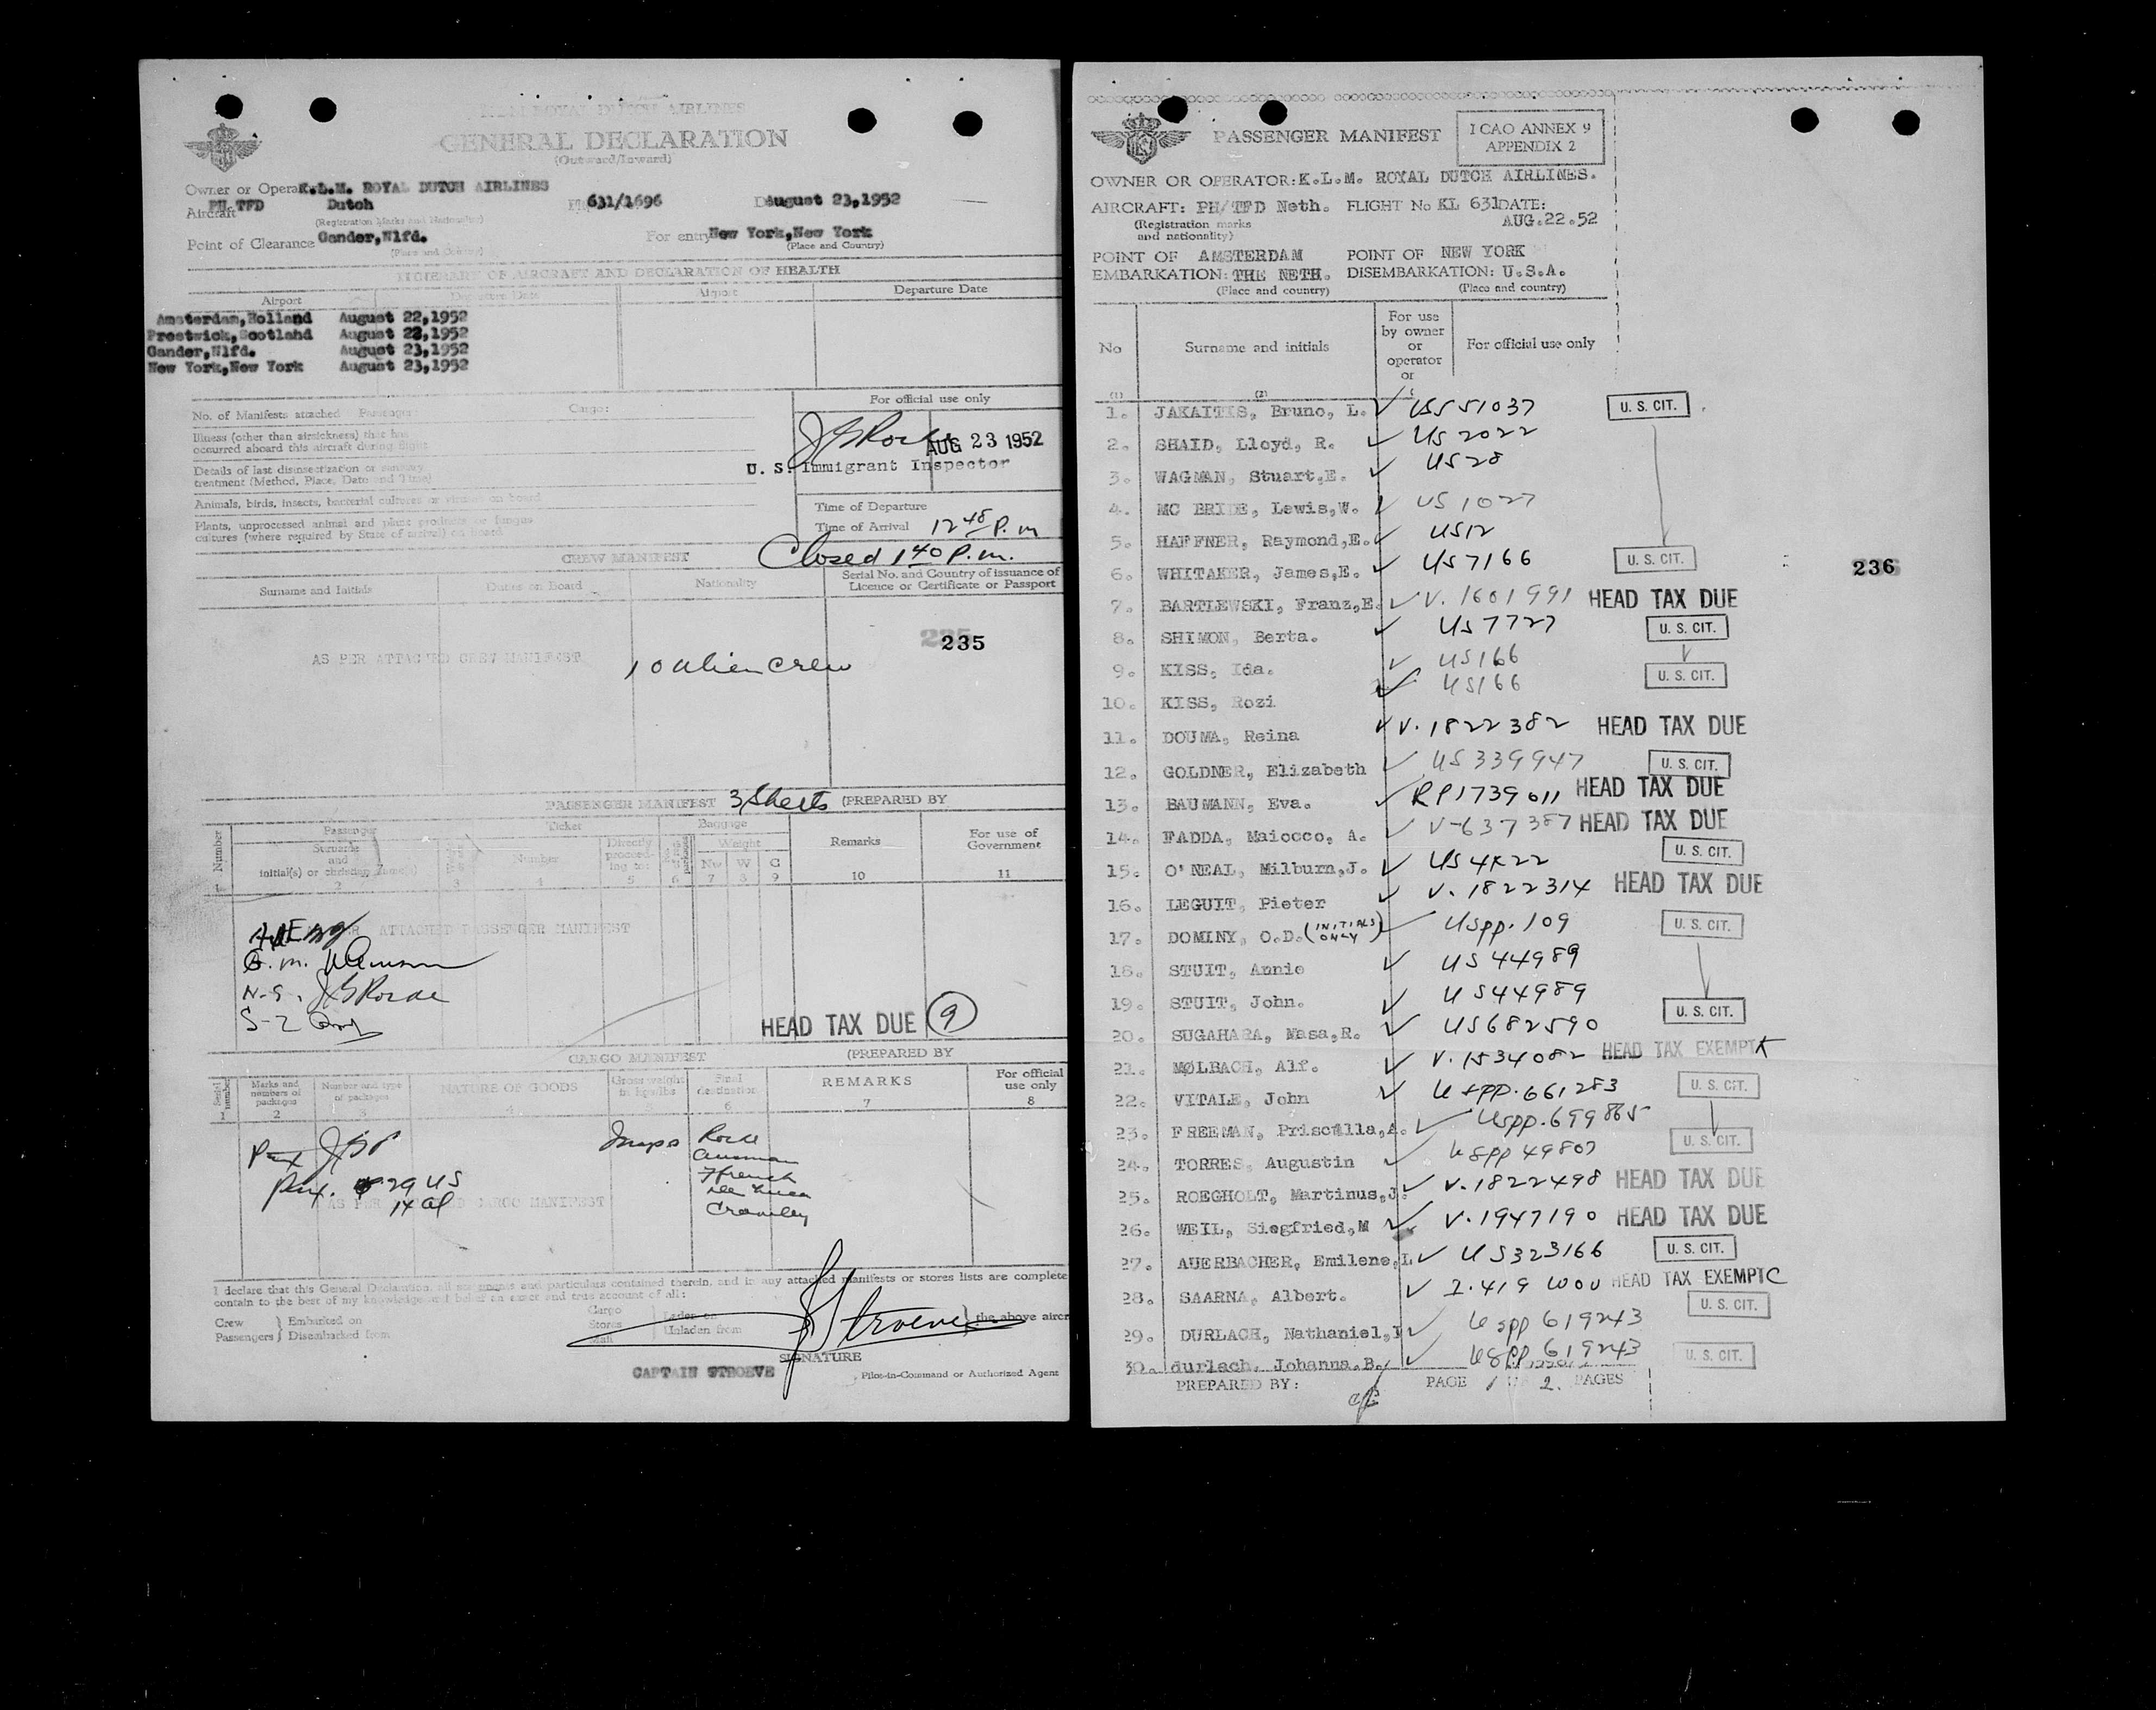 K.L.M. ROYAL DUTCH AIRLINES
GENERAL DECLARATION
(Outward/Inward)
Owner or Opera K.L.M. ROYAL DUTCH AIRLINES
Aircraft PH TFD Dutch 631/1696 August 23,1952
(Registration Marks and Nationality)
Point of Clearance Gander,Nlfd. For entry New York,New York
(Place and Country) (Place and Country)
ITINERARY OF AIRCRAFT AND DECLARATION OF HEALTH
Airport Departure Date Airport Departure Date
Amsterdam,Holland August 22,1952
Prestwick,Scotland August 22,1952
Gander,Nlfd. August 23,1952
New York,New York August 23,1952
No. of Manifests attached Passenger: Cargo: For official use only
Illness (other than airsickness) that has
occurred aboard this aircraft during flight
AUG 23 1952
U. S. Immigrant Inspector
Details of last disinsectization or sanitary
treatment (Method, Place, Date and Time)
Animals, birds, insects, bacterial cultures or viruses on board
Plants, unprocessed animal and plant products or fungus
cultures (where required by State of arrival) on board
Time of Departure
Time of Arrival 12 48 P.m
Closed 1 40 P.m.
CREW MANIFEST
Surname and Initials Duties on Board Nationality Serial No. and Country of issuance of
Licence or Certificate or Passport
235
AS PER ATTACHED CREW MANIFEST 10 alien crew
PASSENGER MANIFEST 3 Sheets (PREPARED BY
Number Passenger Ticket Baggage Remarks For use of
Government
Surname
and
initial(s) or christian name(s) Number Directly
proceed-
ing to: Weight
Nw W C
1 2 3 4 5 6 7 8 9 10 11
AS PER ATTACHED PASSENGER MANIFEST
HEAD TAX DUE 9
CARGO MANIFEST (PREPARED BY
Serial number Marks and
numbers of
packages Number and type
of packages NATURE OF GOODS Gross weight
in kgs/lbs Final
destination REMARKS For official
use only
1 2 3 4 5 6 7 8
Insps Rorke
29 US
14 al
Crowley
AS PER ATTACHED CARGO MANIFEST
I declare that this General Declaration, all statements and particulars contained therein, and in any attached manifests or stores lists are complete
contain to the best of my knowledge and belief an exact and true account of all:
Crew Embarked on Cargo Laden on the above aircr
Passengers Disembarked from Stores Unladen from
Mail
Stroeve
SIGNATURE
CAPTAIN STROEVE Pilot-in-Command or Authorized Agent
PASSENGER MANIFEST
ICAO ANNEX 9
APPENDIX 2
OWNER OR OPERATOR: K.L.M. ROYAL DUTCH AIRLINES.
AIRCRAFT: PH/TFD Neth. FLIGHT No KL 631 DATE:
(Registration marks
and nationality) AUG.22.52
POINT OF AMSTERDAM POINT OF NEW YORK
EMBARKATION: THE NETH. DISEMBARKATION: U.S.A.
(Place and country) (Place and country)
No Surname and initials For use
by owner
or
operator
or For official use only
(1) (2)
1. JAKAITIS, Bruno, L. US 51037 U. S. CIT.
2. SHAID, Lloyd, R. US 2022
3. WAGMAN, Stuart,E. US 28
4. MC BRIDE, Lewis,W. US 1027
5. HAFFNER, Raymond,E. US12
6. WHITAKER, James,E. US 7166 U. S. CIT.
236
7. BARTLEWSKI, Franz,E. V. 1601991 HEAD TAX DUE
8. SHIMON, Berta. US 7727 U. S. CIT.
9. KISS, Ida. US166
10. KISS, Rozi US166 U. S. CIT.
11. DOUMA, Reina V. 1822382 HEAD TAX DUE
12. GOLDNER, Elizabeth US 339947 U. S. CIT.
13. BAUMANN, Eva. RP1739011 HEAD TAX DUE
14. FADDA, Maiocco, A. V-637387 HEAD TAX DUE
15. O'NEAL, Milburn,J. US 4K22 U. S. CIT.
16. LEGUIT, Pieter V. 1822314 HEAD TAX DUE
17. DOMINY, O.D. (INITIALS ONLY) USpp. 109 U. S. CIT.
18. STUIT, Annie US 44989
19. STUIT, John. US44989
20. SUGAHARA, Masa,R. US682590 U. S. CIT.
21. MØLBACH, Alf. V. 1534082 HEAD TAX EXEMPT
22. VITALE, John USpp. 661283 U. S. CIT.
23. FREEMAN, Priscilla,A. USpp. 699865
24. TORRES, Augustin USpp 49807 U. S. CIT.
25. ROEGHOLT, Martinus,J. V. 1822498 HEAD TAX DUE
26. WEIL, Siegfried,M V. 1947190 HEAD TAX DUE
27. AUERBACHER, Emilene,L. US323166 U. S. CIT.
28. SAARNA, Albert. I.419 HEAD TAX EXEMPT C
29. DURLACH, Nathaniel, USpp 619243 U. S. CIT.
30. durlach, Johanna.B. USpp 619243 U. S. CIT.
PREPARED BY: PAGE 1 OF 2. PAGES